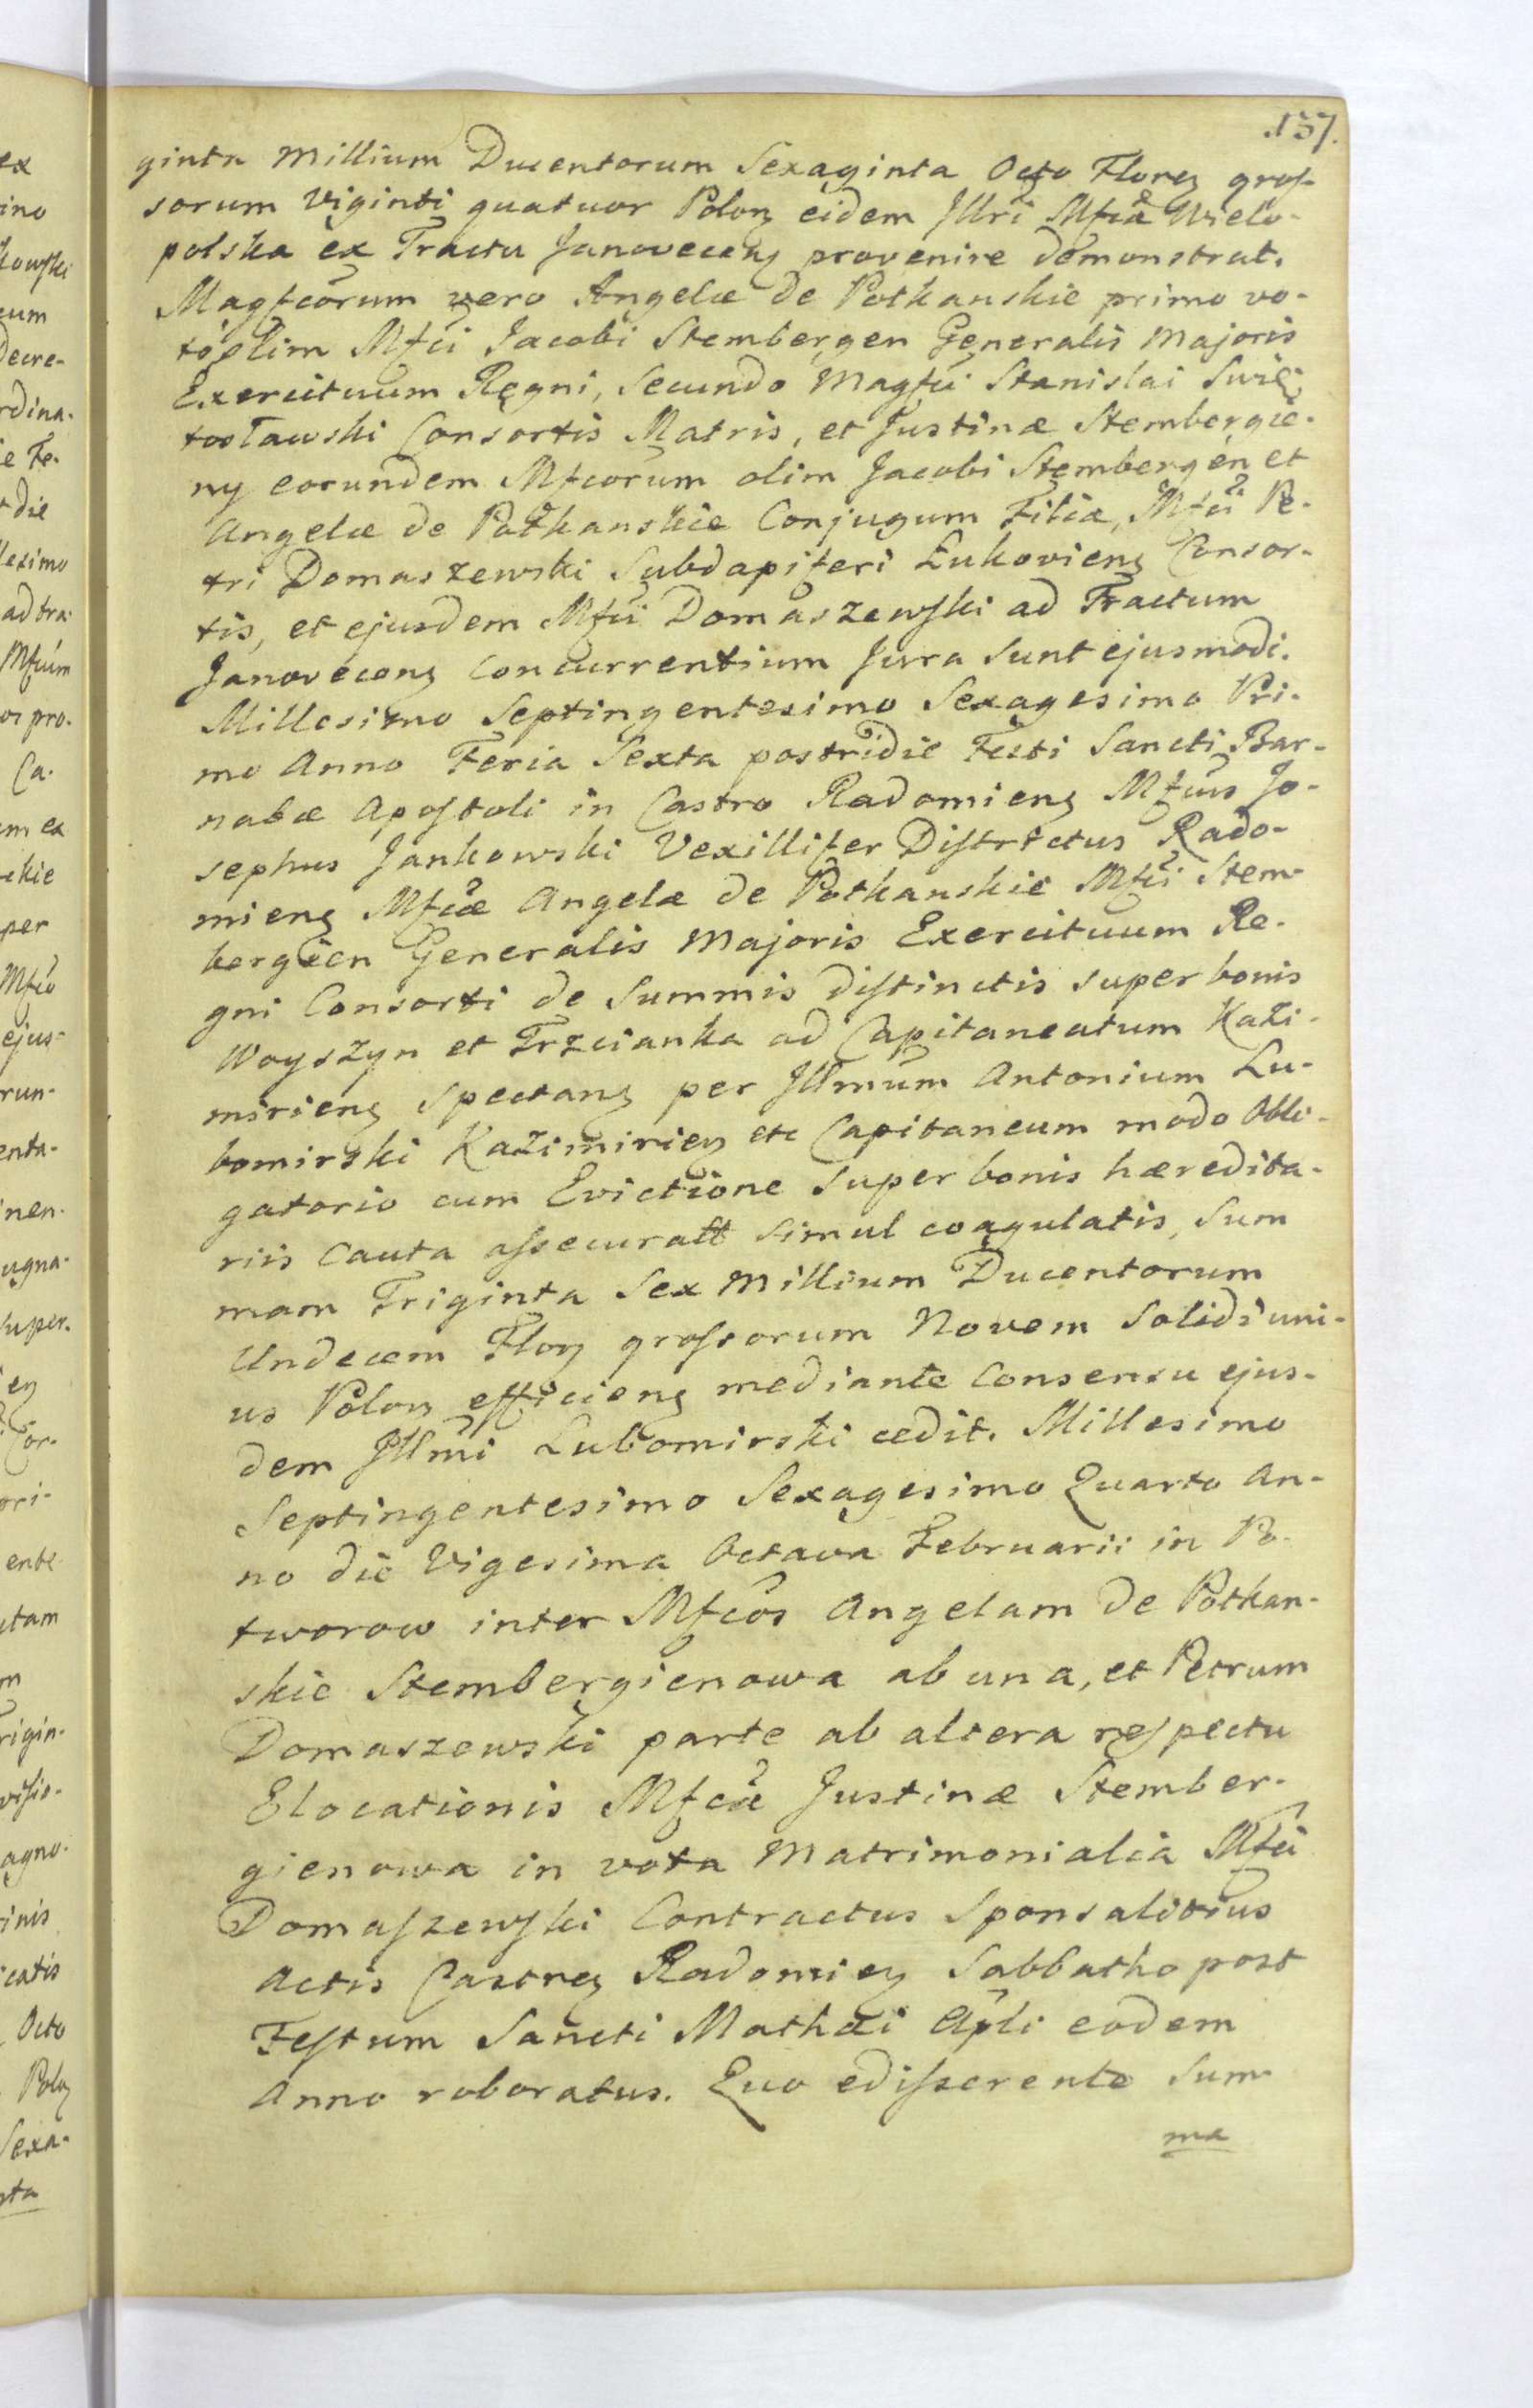 157.
ginta Millium Ducentorum Sexaginta Octo Floreꝫ gros-
sorum Viginti quatuor Polonꝫ eidem Jllri Mfcæ Wielo-
polska ex Tractu Janovecenꝫ provenire demonstrat.
Magfcorum vero Angelæ de Potkanskie primo vo-
to olim Mfci Jacobi Stembergen Generalis Majoris
Exercituum Regni, Secundo Magfci Stanislai Swię-
tosławski Consortis Matris, et Justinæ Stembergie-
ny eorundem Mfcorum olim Jacobi Stembergen et
Angelæ de Potkanskie Conjugum Filiæ, Mfci Pe-
tri Domaszewski Subdapiferi Łukovienꝫ Consor-
tis, et ejusdem Mfci Domaszewski ad Tractum
Janovecenꝫ Concurrentium Jura sunt ejusmodi.
Millesimo Septingentesimo Sexagesimo Pri-
mo Anno Feria Sexta postridie Festi Sancti Bar-
nabæ Apostoli in Castro Radomienꝫ Mfcus Jo-
sephus Jankowski Vexillifer Districtus Rado-
mienꝫ Mfcæ Angelæ de Potkanskie Mfci Stem-
bergien Generalis Majoris Exercituum Re-
gni Consorti de Summis distinctis super bonis
Woyszyn et Trzcianka ad Capitaneatum Kazi-
mirienꝫ Spectanꝫ per Jllmum Antonium Lu-
bomirski Kazimirieꝫ etc Capitaneum modo Obli-
gatorio cum Evictione Super bonis hæredita-
riis Cauta assecuratt simul coagulatis, Sum
mam Triginta Sex Millium Ducentorum
Undecem Floꝫ grossorum Novem Solidi uni-
us Polonꝫ efficienꝫ mediante Consensu ejus-
dem Jllmi Lubomirski cedit. Millesimo
Septingentesimo Sexagesimo Quarto An-
no die Vigesima Octava Februarii in Po-
tworow inter Mfcos Angelam de Potkan-
skie Stembergienowa ab una, et Petrum
Domaszewski parte ab altera respectu
Elocationis Mfcæ Justinæ Stember-
gienowa in vota Matrimonialia Mfci
Domaszewski Contractus Sponsalitius
Actis Castreꝫ Radomieꝫ Sabbatho post
Festum Sancti Mathæi Apli eodem
Anno roboratus. Quo edisserente Sum-
ma